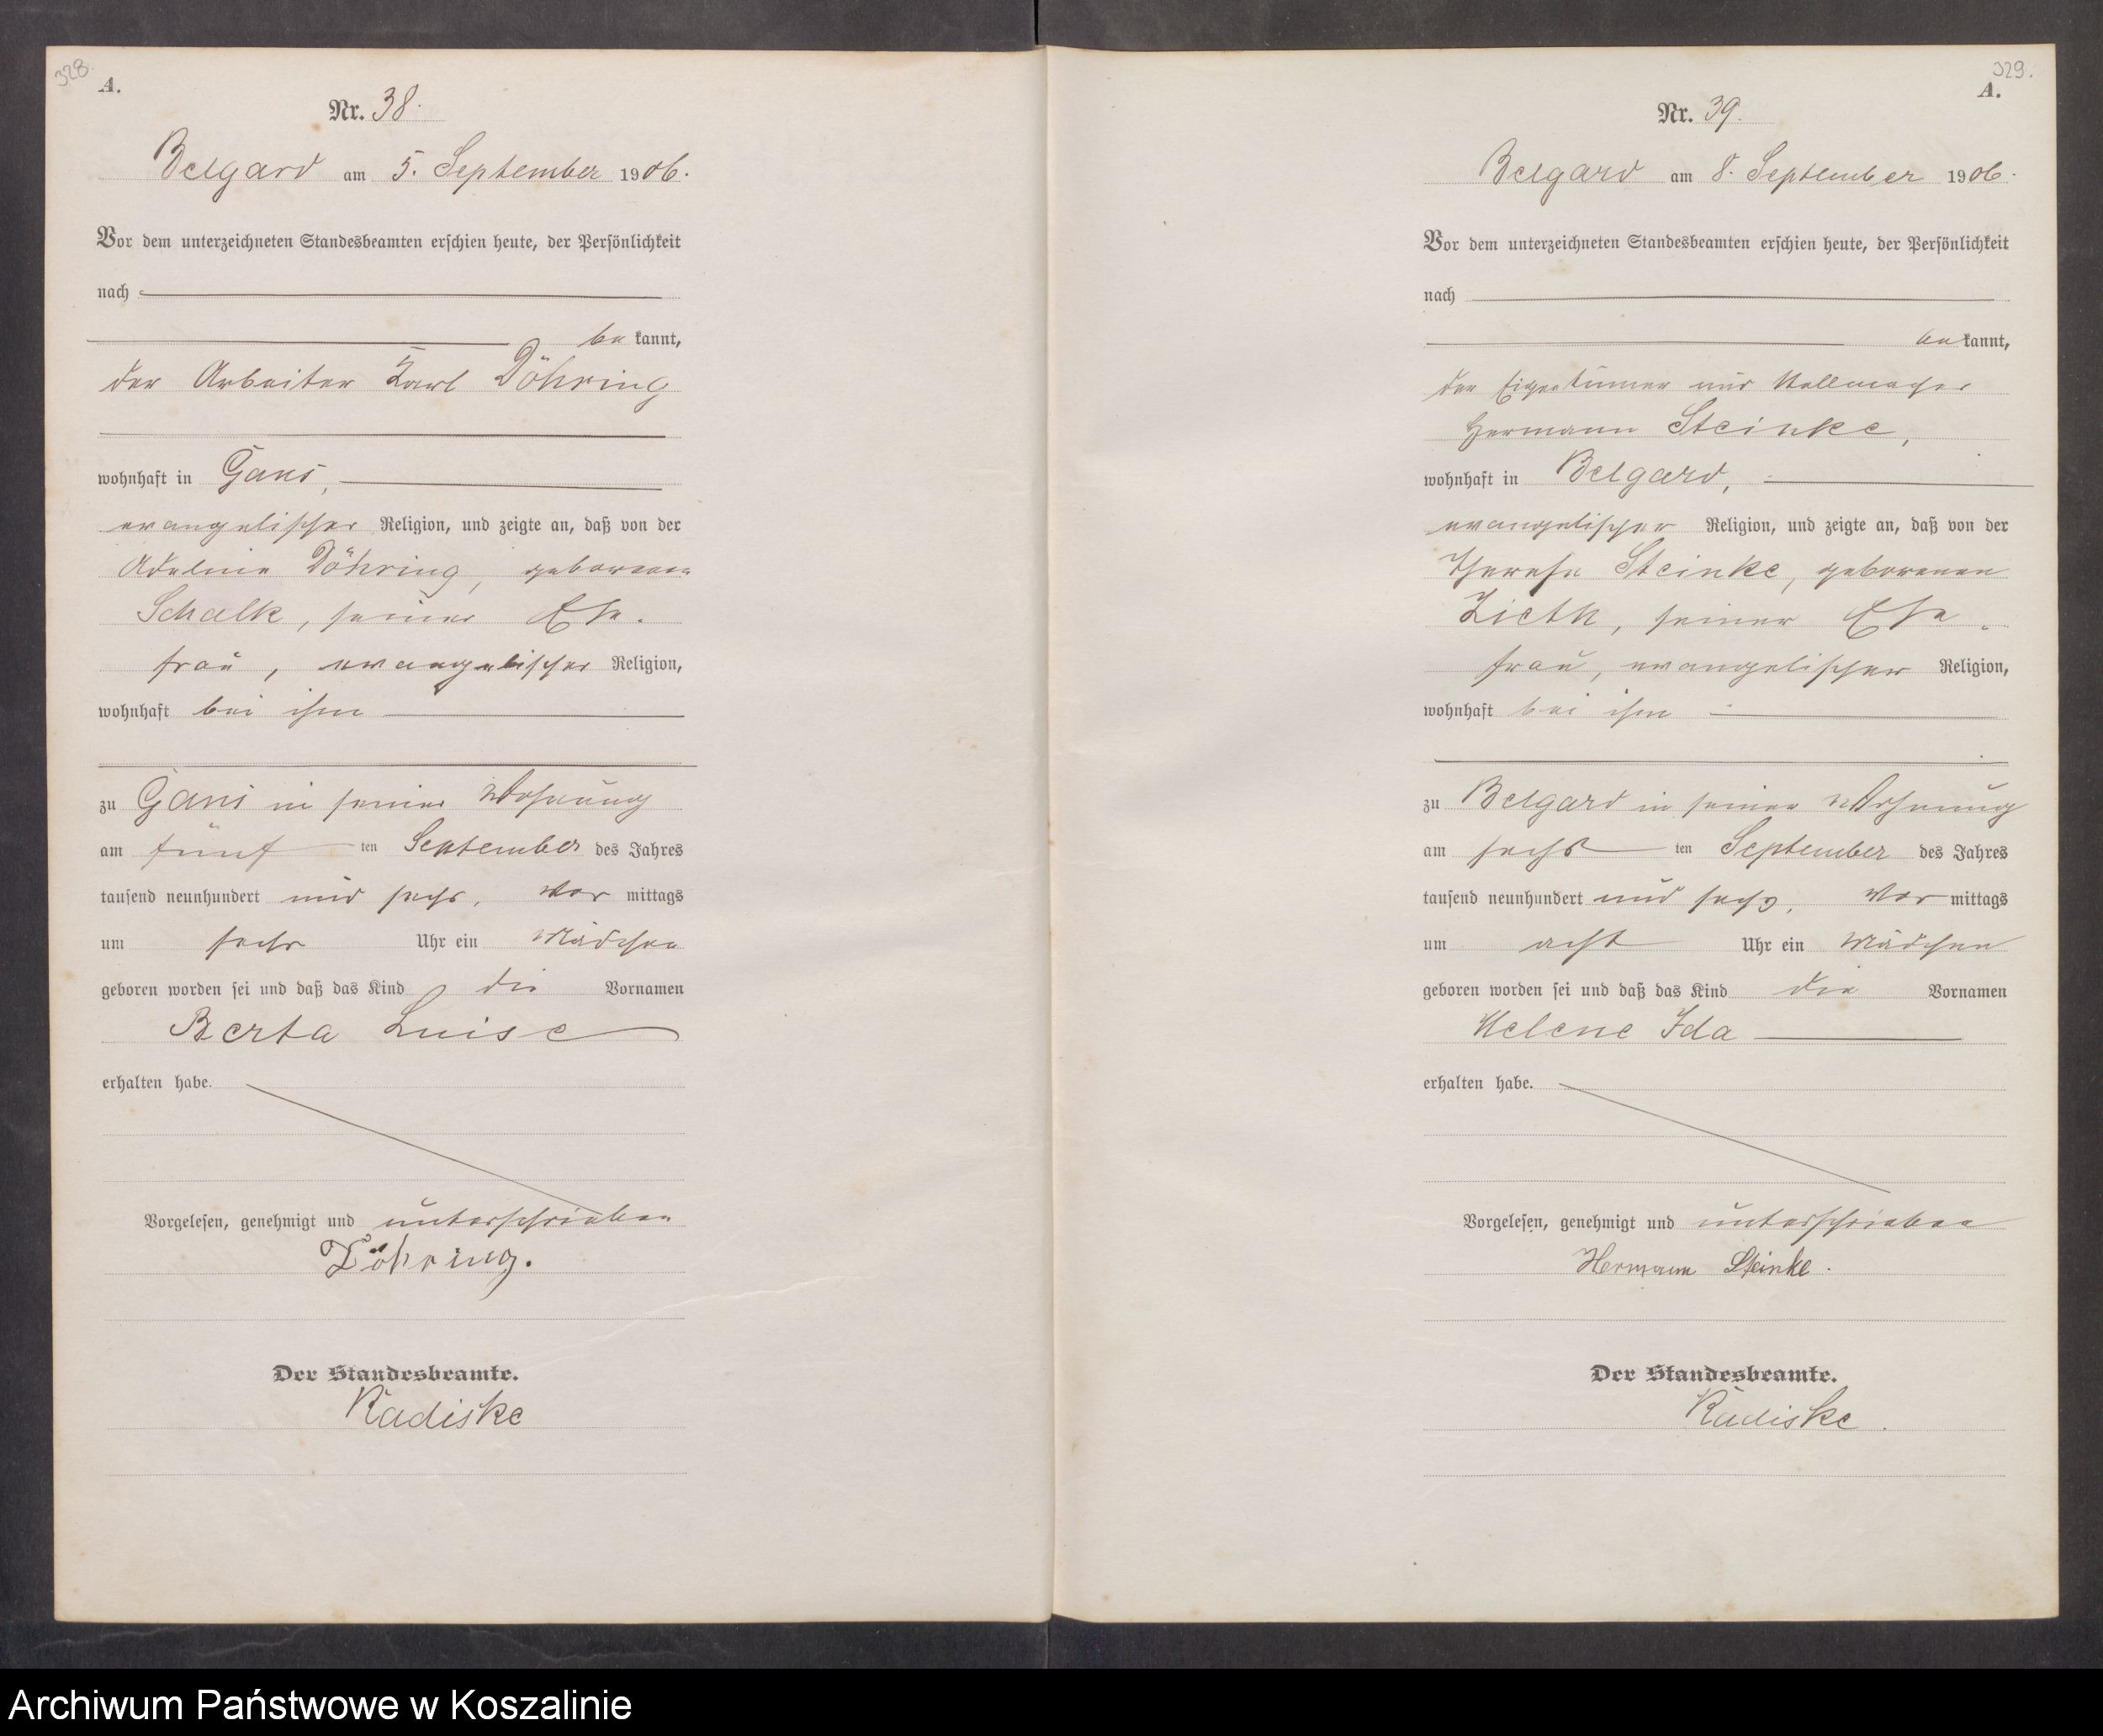 328.
A.
Nr. 38.
Belgard am 5. September 1906.
Vor dem unterzeichneten Standesbeamten erschien heute, der Persönlichkeit
nach
be kannt,
der Arbeiter Karl Döhring
wohnhaft in Gans,
evangelischer Religion, und zeigte an, daß von der
Döhring, geborenen
Schalk, seiner Ehe-
frau, evangelischer Religion,
wohnhaft bei ihm
zu Gans in seiner Wohnung
am fünf ten September des Jahres
tausend neunhundert und sechs, Vor mittags
um sechs Uhr ein Mädchen
geboren worden sei und daß das Kind die Vornamen
Berta Luise
erhalten habe.
Vorgelesen, genehmigt und unterschrieben
Döhring.
Der Standesbeamte.
Radiske
329.
A.
Nr. 39.
Belgard am 8. September 1906.
Vor dem unterzeichneten Standesbeamten erschien heute, der Persönlichkeit
nach
be kannt,
der Eigentümer und Stellmacher
Hermann Steinke,
wohnhaft in Belgard,
evangelischer Religion, und zeigte an, daß von der
Therese Steinke, geborenen
Zieth, seiner Ehe-
frau, evangelischer Religion,
wohnhaft bei ihm
zu Belgard in seiner Wohnung
am sechs ten September des Jahres
tausend neunhundert und sechs, Vor mittags
um acht Uhr ein Mädchen
geboren worden sei und daß das Kind die Vornamen
Helene Ida
erhalten habe.
Vorgelesen, genehmigt und unterschrieben
Hermann Steinke.
Der Standesbeamte.
Radiske.
Archiwum Państwowe w Koszalinie